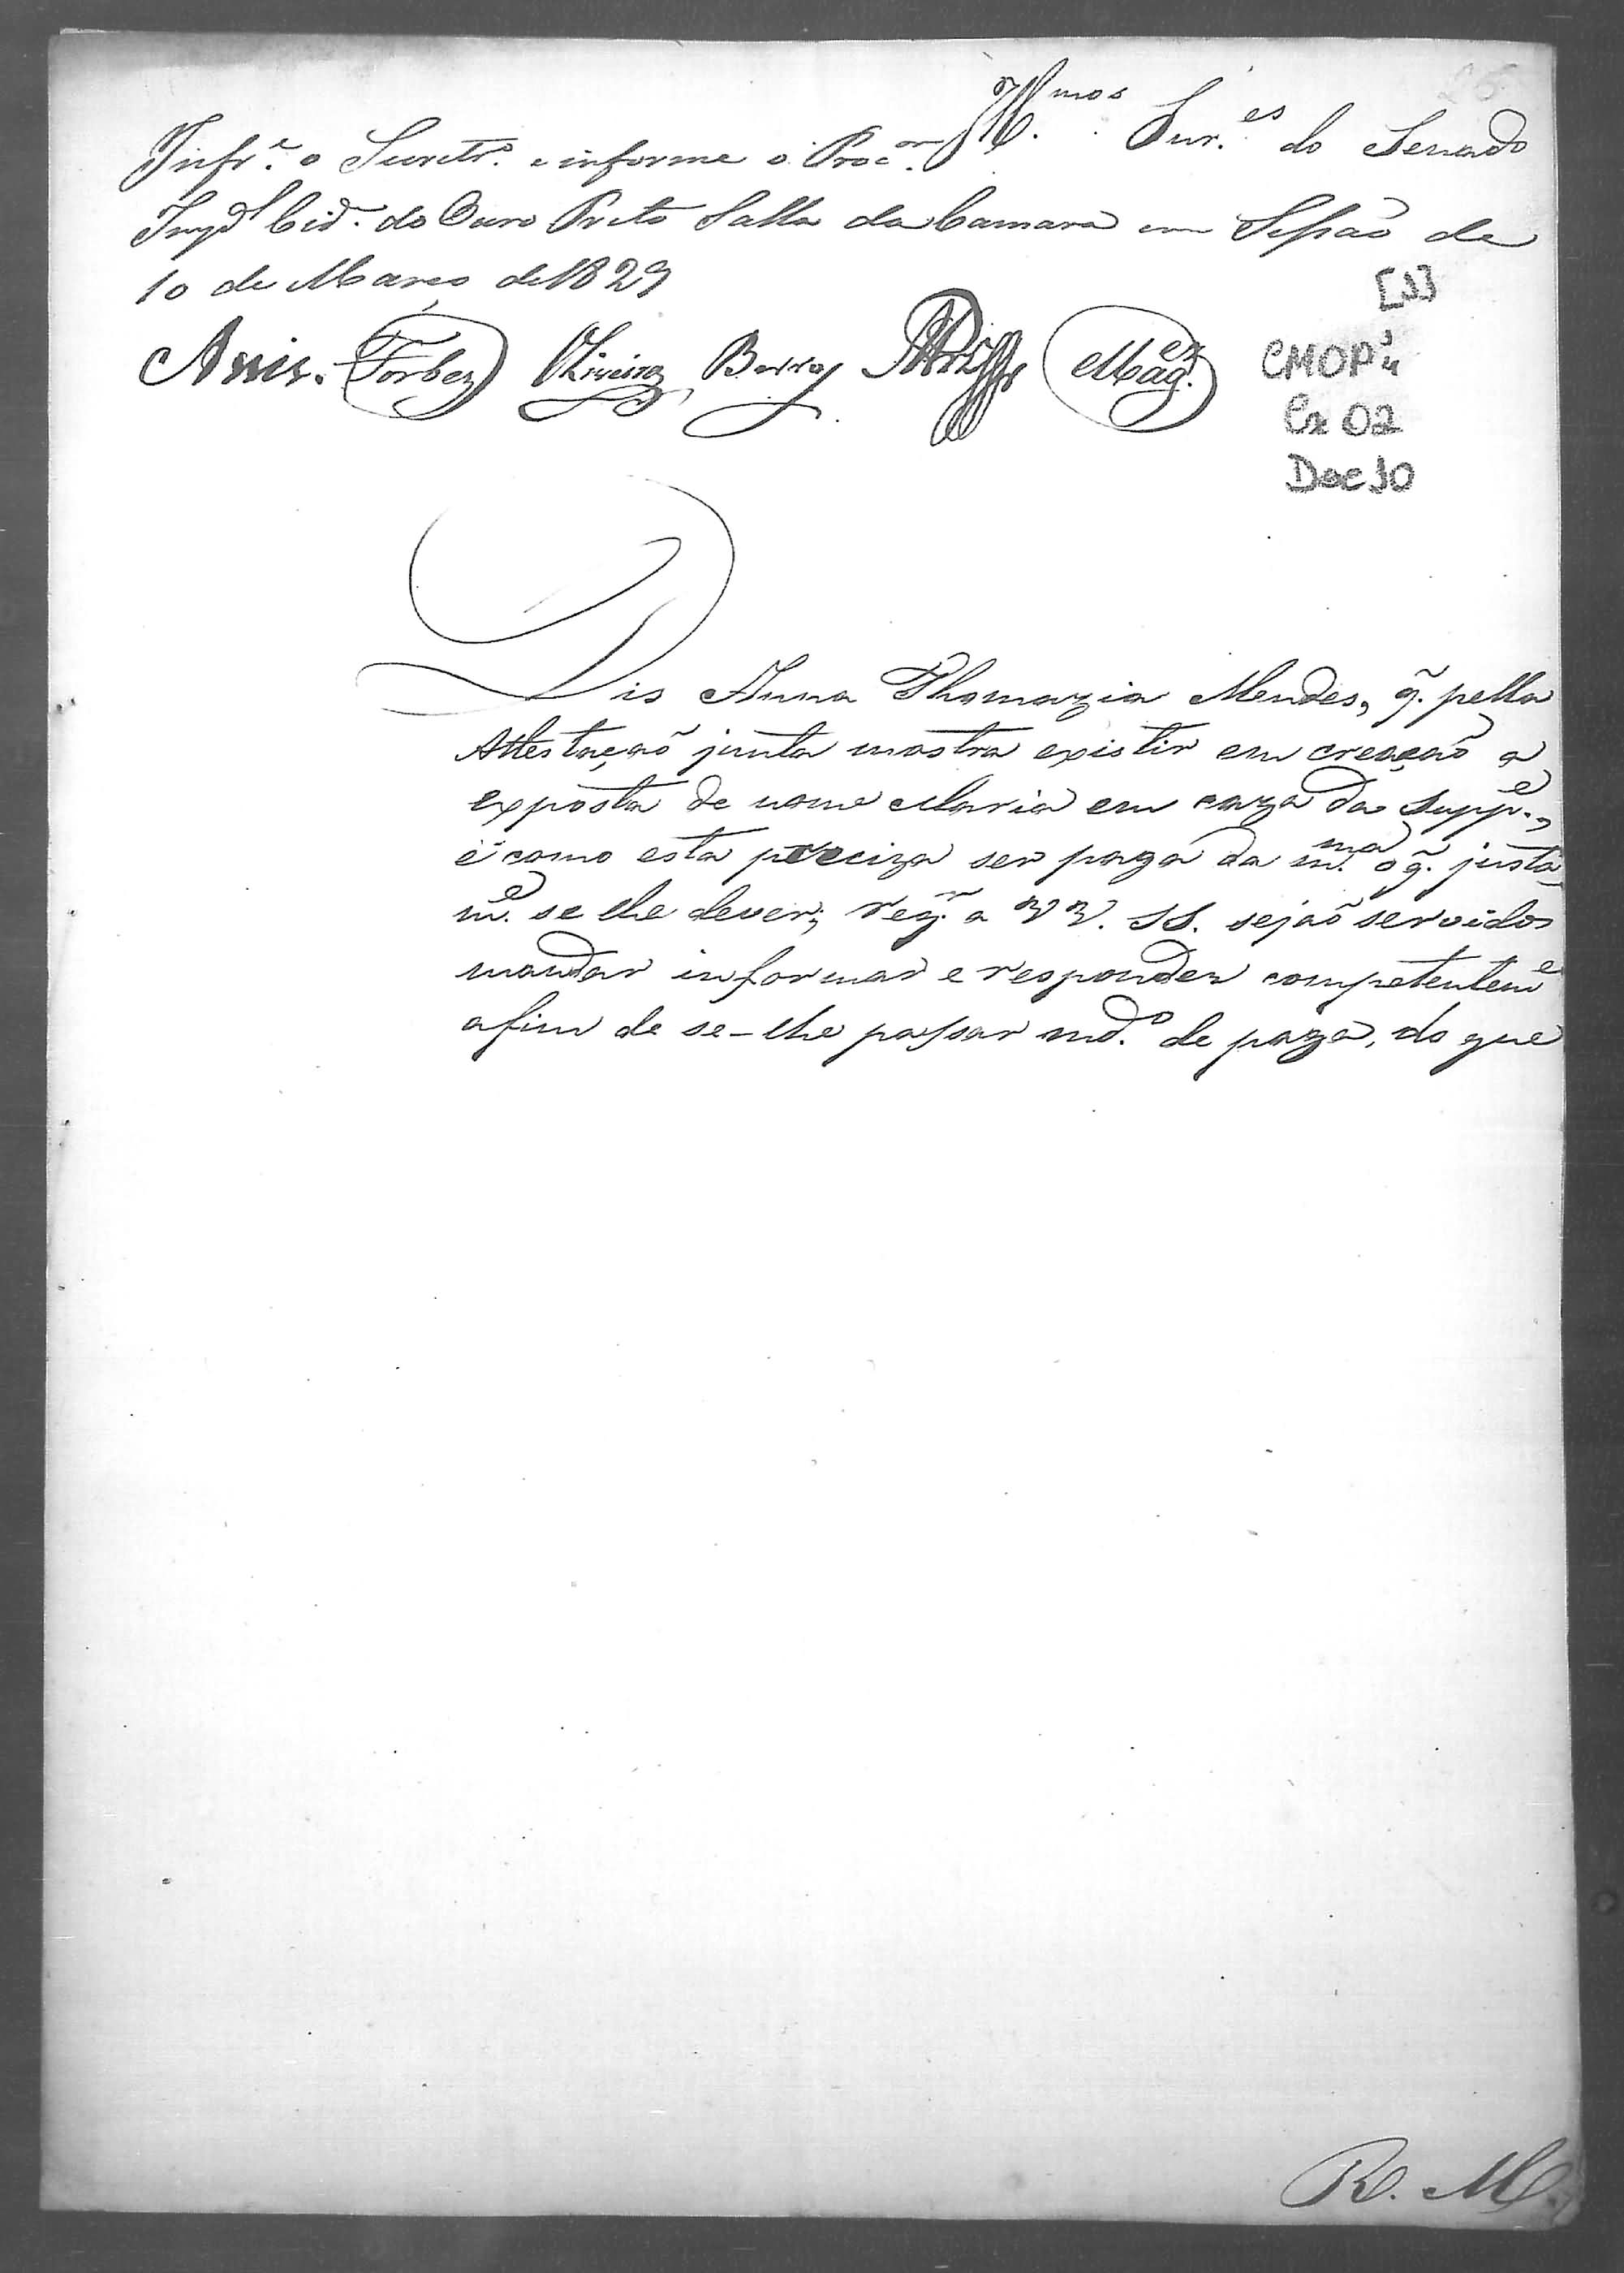 Ill.mos Snr.es do Senado
Infr.e o Secretr.o e informe o Proc.or
Imp.l Cid.e do Ouro Preto Salla da Camara em Sessão de
10 de Março de 1829
Forbez Oliveira Barros Mag.es
[1]
CMOP
Cx 02
Doc 10
Dis Anna Thomazia Mendes, q̃. pella
Attestaçaõ junta mostra existir em creaçaõ a
exposta de nome Maria em caza da Supp.e,
e como esta preciza ser paga da m.ma o q̃. justa-
m.e se lhe dever; req.r a VV. SS. sejaõ servidos
mandar informar e responder competentem.e
afim de se-lhe passar md.o de paga, do que
R. M.